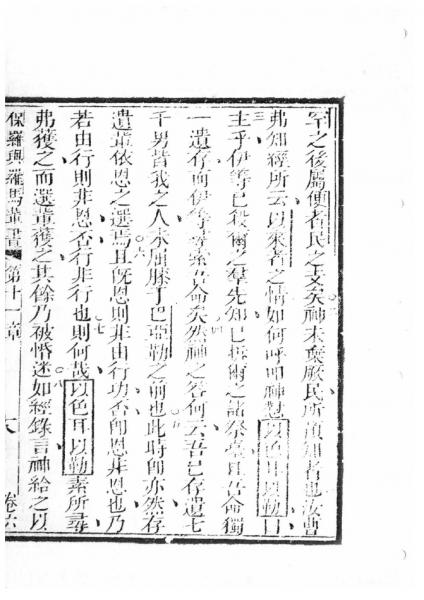 之後屬便者民之支矣神未棄厥民所預知者也汝曹
弗知經所云以來者之情如何呼叩神懟以色耳以勒曰
主乎伊等已殺爾之羣先知已拆爾之諸祭臺且吾獨
一遺存而伊等尋索吾命矣然神之答何云吾已存遺七
千男皆我之人未屈膝于巴亞勒之前也此時卽亦然存
遺輩依恩之選焉且旣恩則非由行功否卽恩非恩也乃
若由行則非恩否行非行也則何哉以色耳以勒素所尋
弗獲之而選輩獲之其餘乃被惛迷如經錄言神給之以
保羅與羅馬輩書 第十一章 卷六